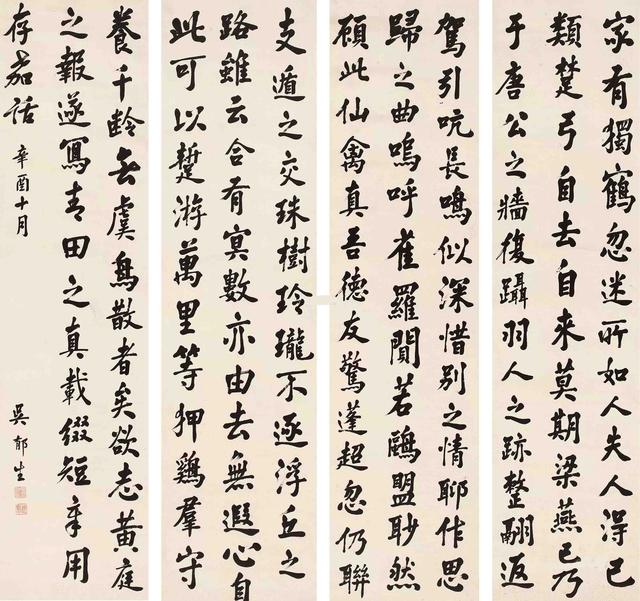 家有獨鶴忽迷所如人失人得已
類楚弓自去自來莫期梁燕已乃
于唐公之牆復躡羽人之跡整翮返
駕引吭長鳴似深惜別之情聊作思
歸之曲嗚呼雀羅闃若鷗盟眇然
顧此仙禽真吾德友驚蓬超忽仍聯
支遁之交珠樹玲瓏不逐浮丘之
路雖云合有冥數亦由去無遐心自
此可以蹔游萬里等狎鷄羣守
養千齡无虞鳧散者矣欲志黃庭
之報遂寫青田之真載綴短章用
存嘉話 辛酉十月
吳郁生